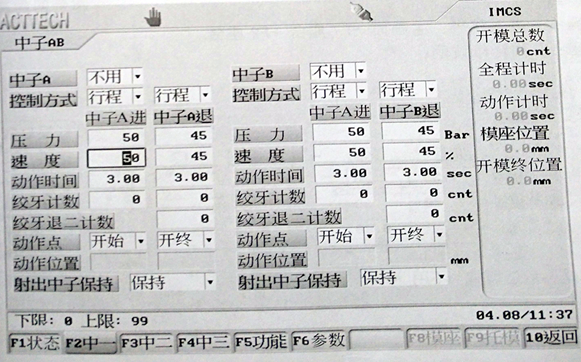 ACTTECH IMCS
中子AB
开模总数
0 cnt
全程计时
0.00 sec
动作计时
0.00 sec
模座位置
0.0 mm
开模终位置
0.0 mm
中子A 不用 中子B 不用
控制方式 行程 行程 控制方式 行程 行程
中子A进 中子A退 中子A进 中子B退
压 力 50 45 压 力 50 45 Bar
速 度 50 45 速 度 50 45 %
动作时间 3.00 3.00 动作时间 3.00 3.00 sec
绞牙计数 0 0 绞牙计数 0 0 cnt
绞牙退二计数 0 绞牙退二计数 0 cnt
动作点 开始 开终 动作点 开始 开终
动作位置 动作位置 mm
射出中子保持 保持 射出中子保持 保持
下限: 0 上限: 99 04.08/11:37
F1状态 F2中一 F3中二 F4中三 F5功能 F6参数 F8模座 F9托模 10返回